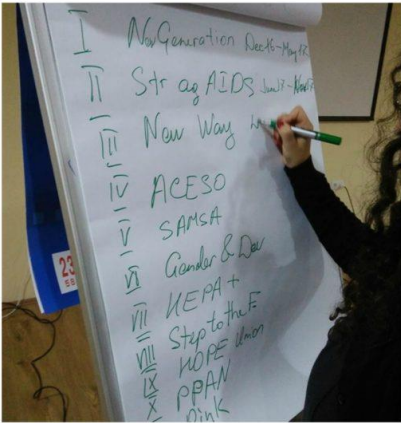 I New Generation Dec 16 - May 17
II Str ag AIDS Jun 17 - Nov 17
III New Way
IV ACESO
V SAMSA
VI Gender & Dev
VII HEPA +
VIII Step to the F.
IX HOPE Union
X PPAN
Pink
23